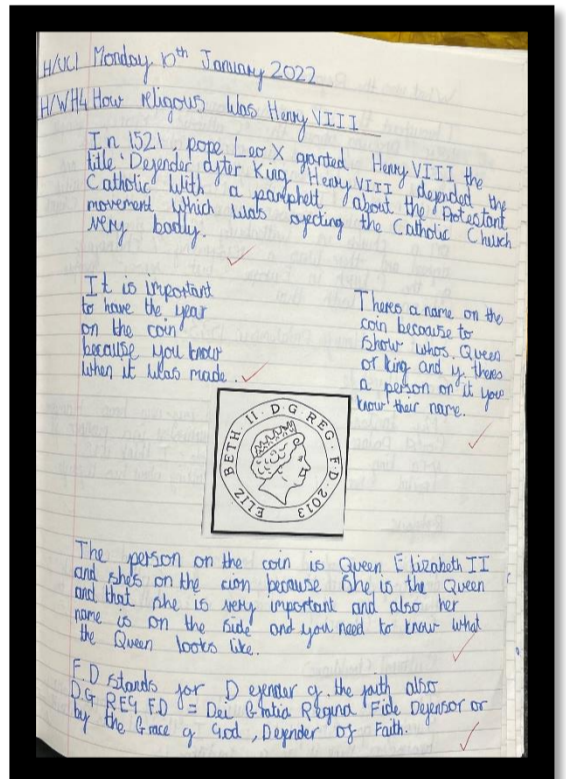 H/UC1 Monday 10th January 2022
H/WH4 How religous was Henry VIII
In 1521, pope Leo X granted Henry VIII the
title 'Defender after King Henry VIII defended the
Catholic With a pamphelt about the Protestant
movement which was affecting the Catholic Church
very badly.
It is important
to have the year
on the coin
because you know
when it was made.
Theres a name on the
coin because to
show whos Queen
or king and if theres
a person on it you
know their name.
ELIZ BETH · II · D · G · REG · F · D · 2013
The person on the coin is Queen Elizabeth II
and she's on the cion because she is the Queen
and that she is very important and also her
name is on the side and you need to know what
the Queen looks like.
F.D stands for Defender of the faith also
D.G REG F.D = Dei Gratia Regina Fide Defensor or
by the Grace of God, Defender of Faith.